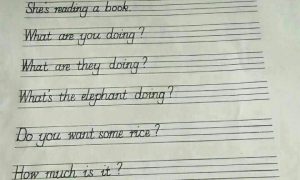 She's reading a book.
What are you doing?
What are they doing?
What's the elephant doing?
Do you want some rice?
How much is it?